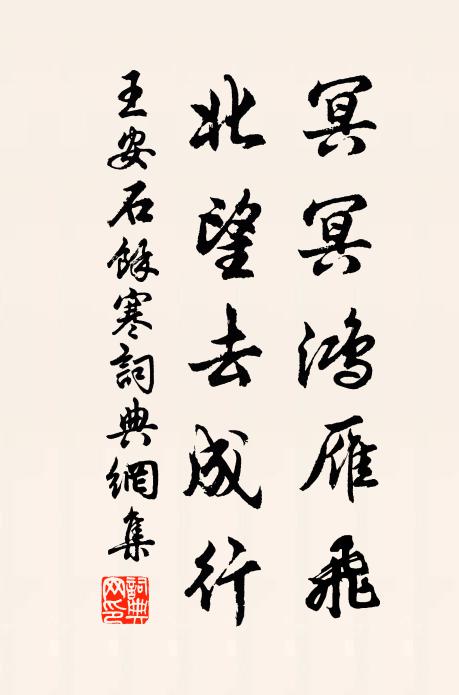 冥冥鴻雁飛
北望去成行
王安石餘寒詞典網集
詞典网印